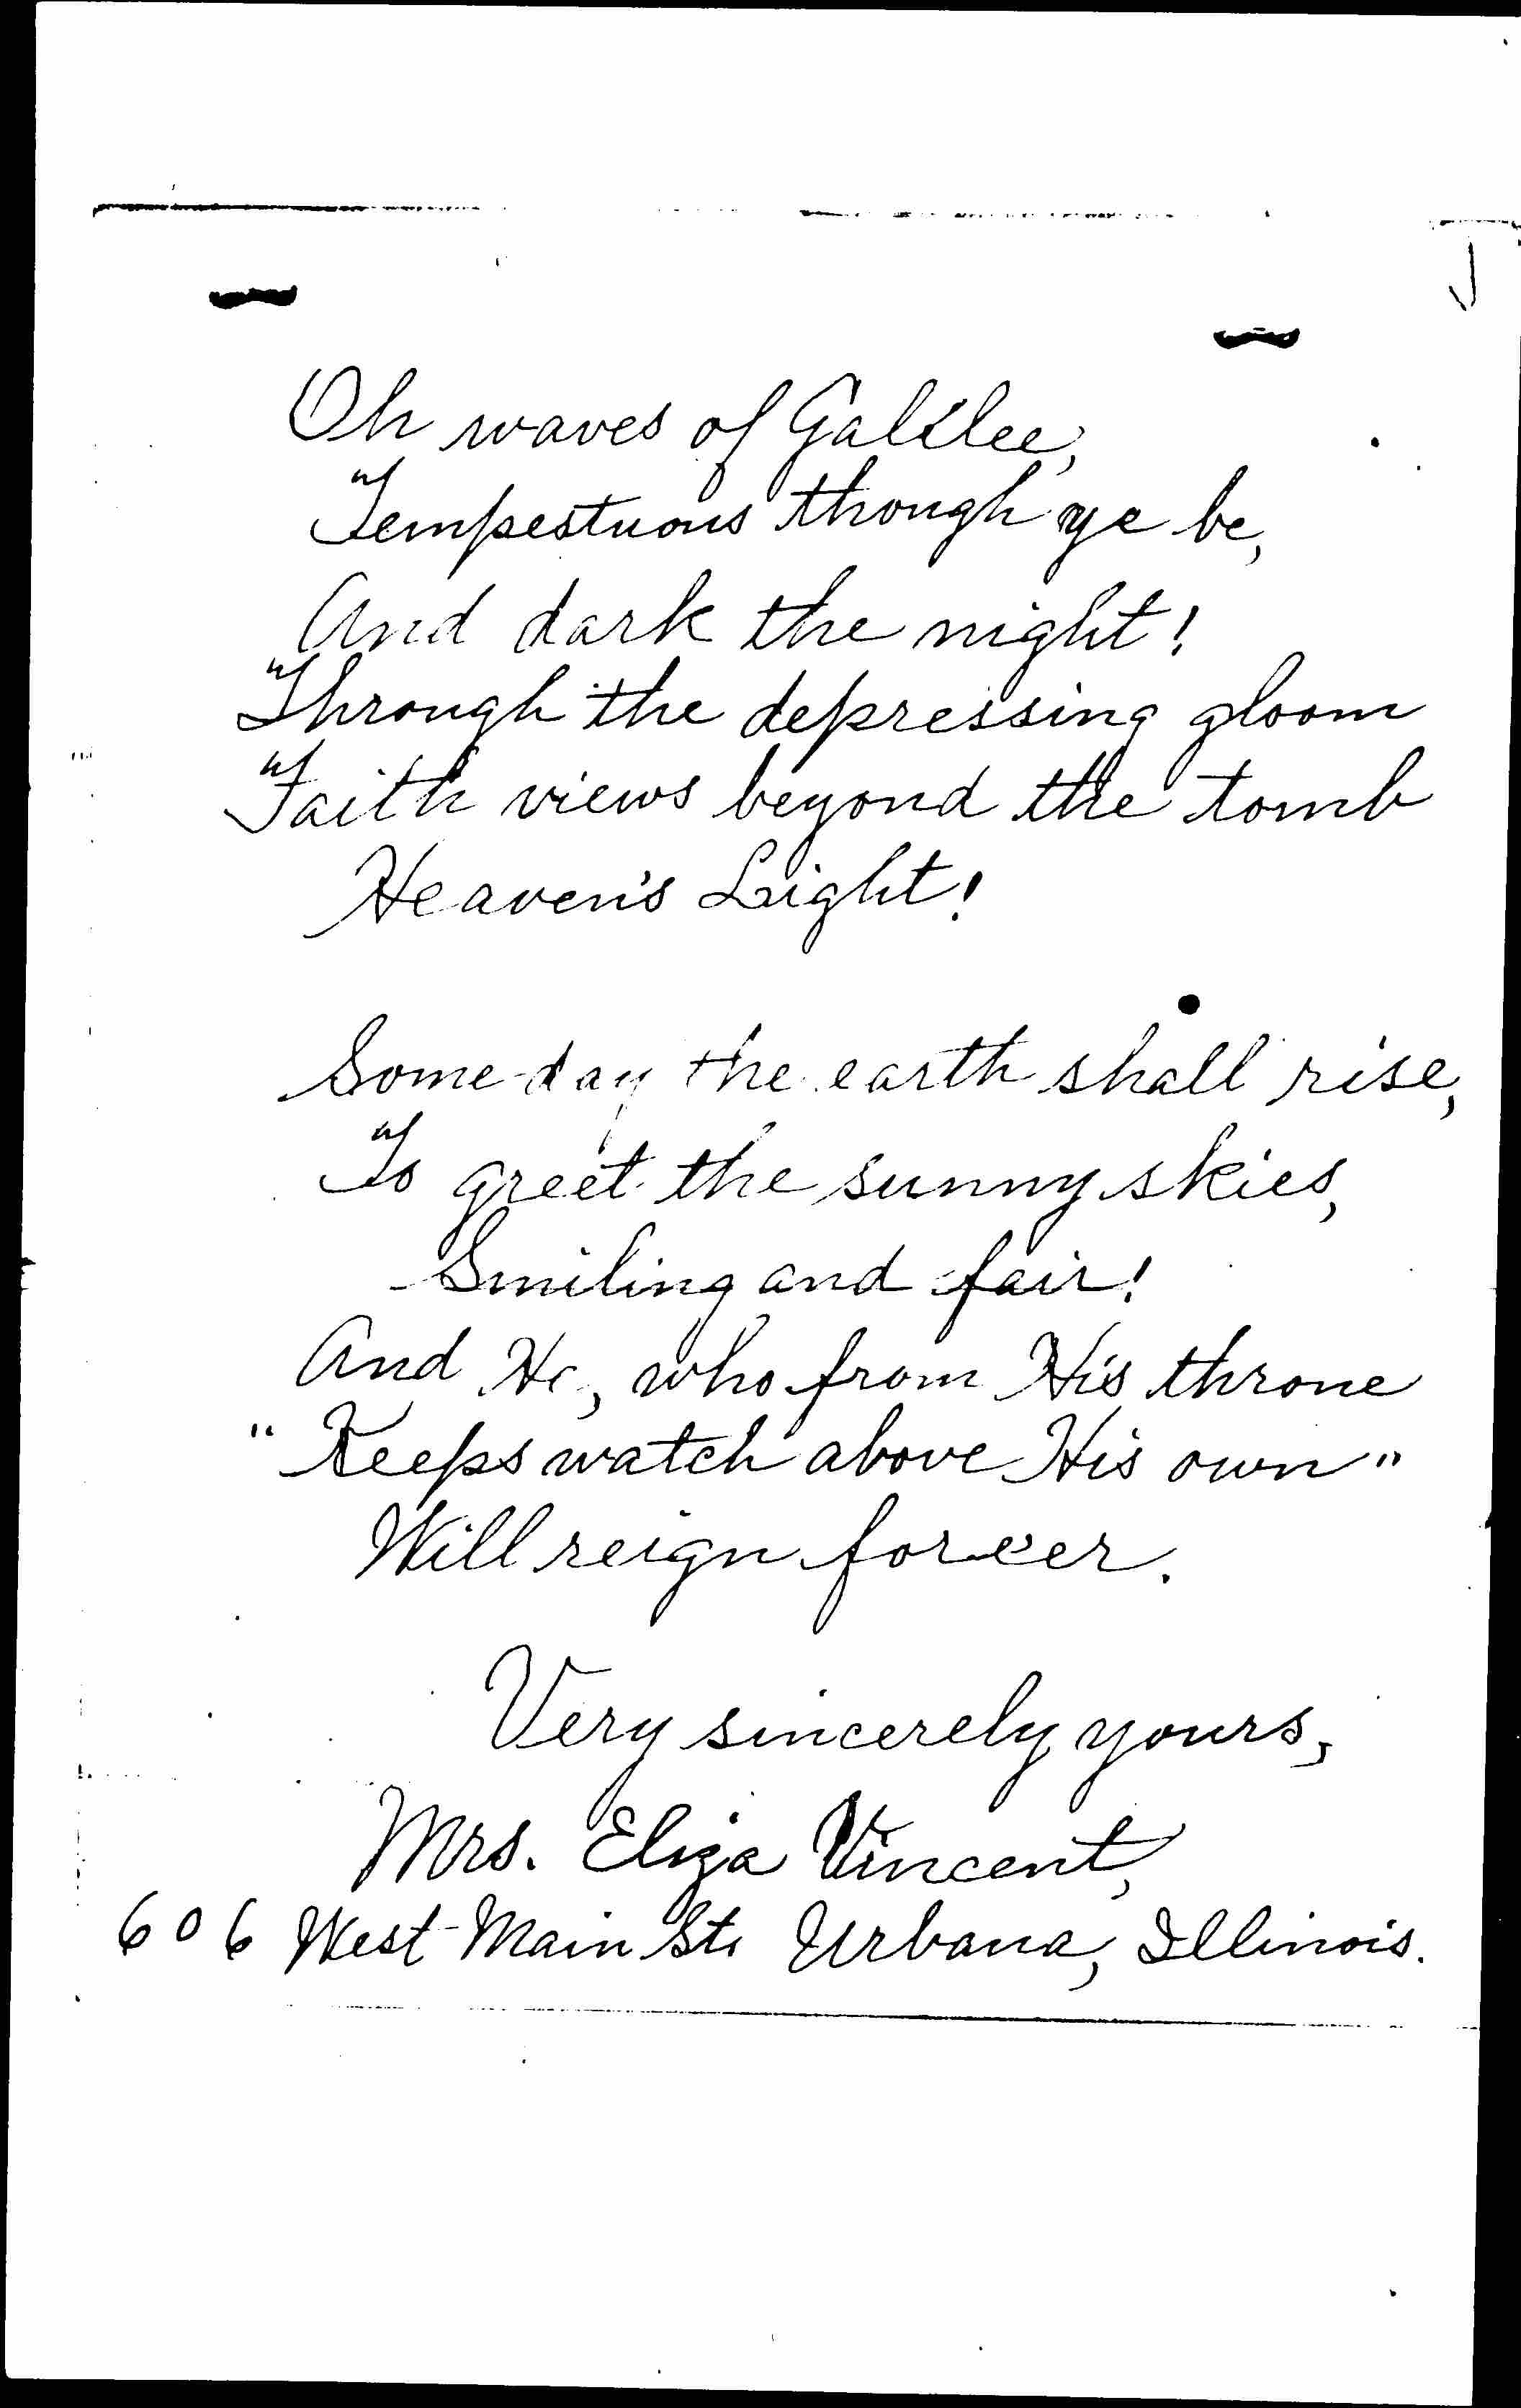 Oh waves of Galilee,
Tempestuous though ye be,
And dark the night!
Through the depressing gloom
Faith views beyond the tomb
Heaven's Light!
Some-day the earth shall rise,
To greet the sunny skies,
Smiling and fair!
And He, who from His throne
"Keeps watch above His own"
Will reign fore'er.
Very sincerely yours,
Mrs. Eliza Vincent,
606 West Main St. Urbana, Illinois.